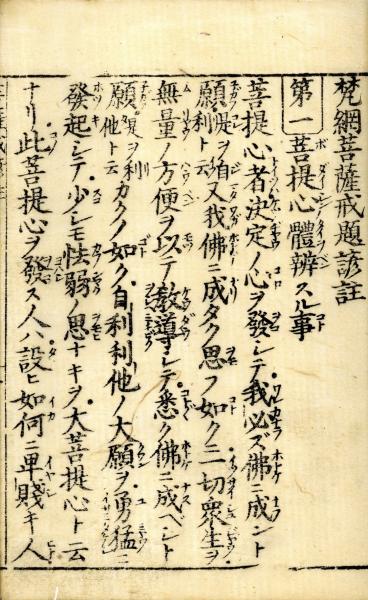 梵網菩薩戒題諺註
第一菩提心體辨スル事
菩提心者決定ノ心ヲ發シテ我必ズ佛ニ成ント
願提ヲ自利ト云又我佛ニ成タク思フ如ク一切衆生ヲ
無量ノ方便ヲ以テ教導シテ悉ク佛ニ成ベント
願提ヲ利他ト云カクノ如ク自利利他ノ大願ヲ勇猛ニ
發起シテ少シモ怯弱ノ思ナキヲ大菩提心ト云
ナリ此菩提心ヲ發ス人ハ設ヒ如何ニ卑賤キ人